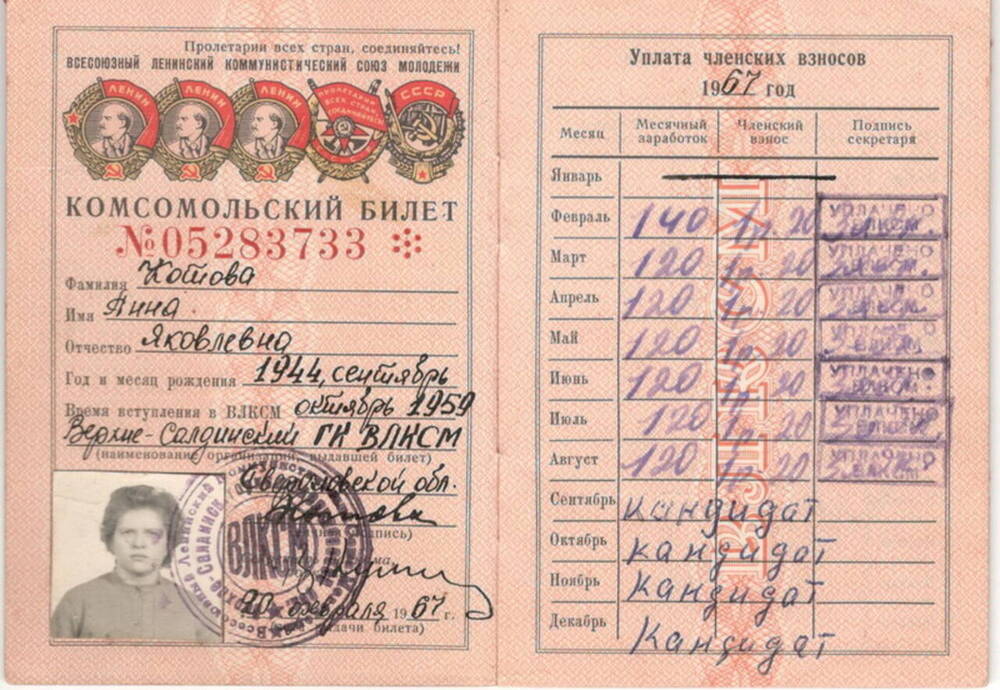 Пролетарии всех стран, соединяйтесь!
ВСЕСОЮЗНЫЙ ЛЕНИНСКИЙ КОММУНИСТИЧЕСКИЙ СОЮЗ МОЛОДЕЖИ
ЛЕНИН ЛЕНИН ЛЕНИН ПРОЛЕТАРИИ ВСЕХ СТРАН СОЕДИНЯЙТЕСЬ СССР
КОМСОМОЛЬСКИЙ БИЛЕТ
№05283733
Фамилия Котова
Имя Анна
Отчество Яковлевна
Год и месяц рождения 1944, сентябрь
Время вступления в ВЛКСМ октябрь 1959
Верхне-Салдинский ГК ВЛКСМ
(наименование организации, выдавшей билет)
Свердловской обл.
(личная подпись)
ВЛКСМ
20 февраля 1967 г.
(дата выдачи билета)
Уплата членских взносов
1967 год
Месяц Месячный заработок Членский взнос Подпись секретаря
Январь
Февраль 140 1р. 20 УПЛАЧЕНО ВЛКСМ
Март 120 1р. 20 УПЛАЧЕНО
Апрель 120 1р. 20 УПЛАЧЕНО
Май 120 1р. 20 УПЛАЧЕНО ВЛКСМ
Июнь 120 1р. 20 УПЛАЧЕНО ВЛКСМ
Июль 120 1р. 20 УПЛАЧЕНО ВЛКСМ
Август 120 1р. 20 УПЛАЧЕНО ВЛКСМ
Сентябрь кандидат
Октябрь кандидат
Ноябрь кандидат
Декабрь кандидат
ВЛКСМ